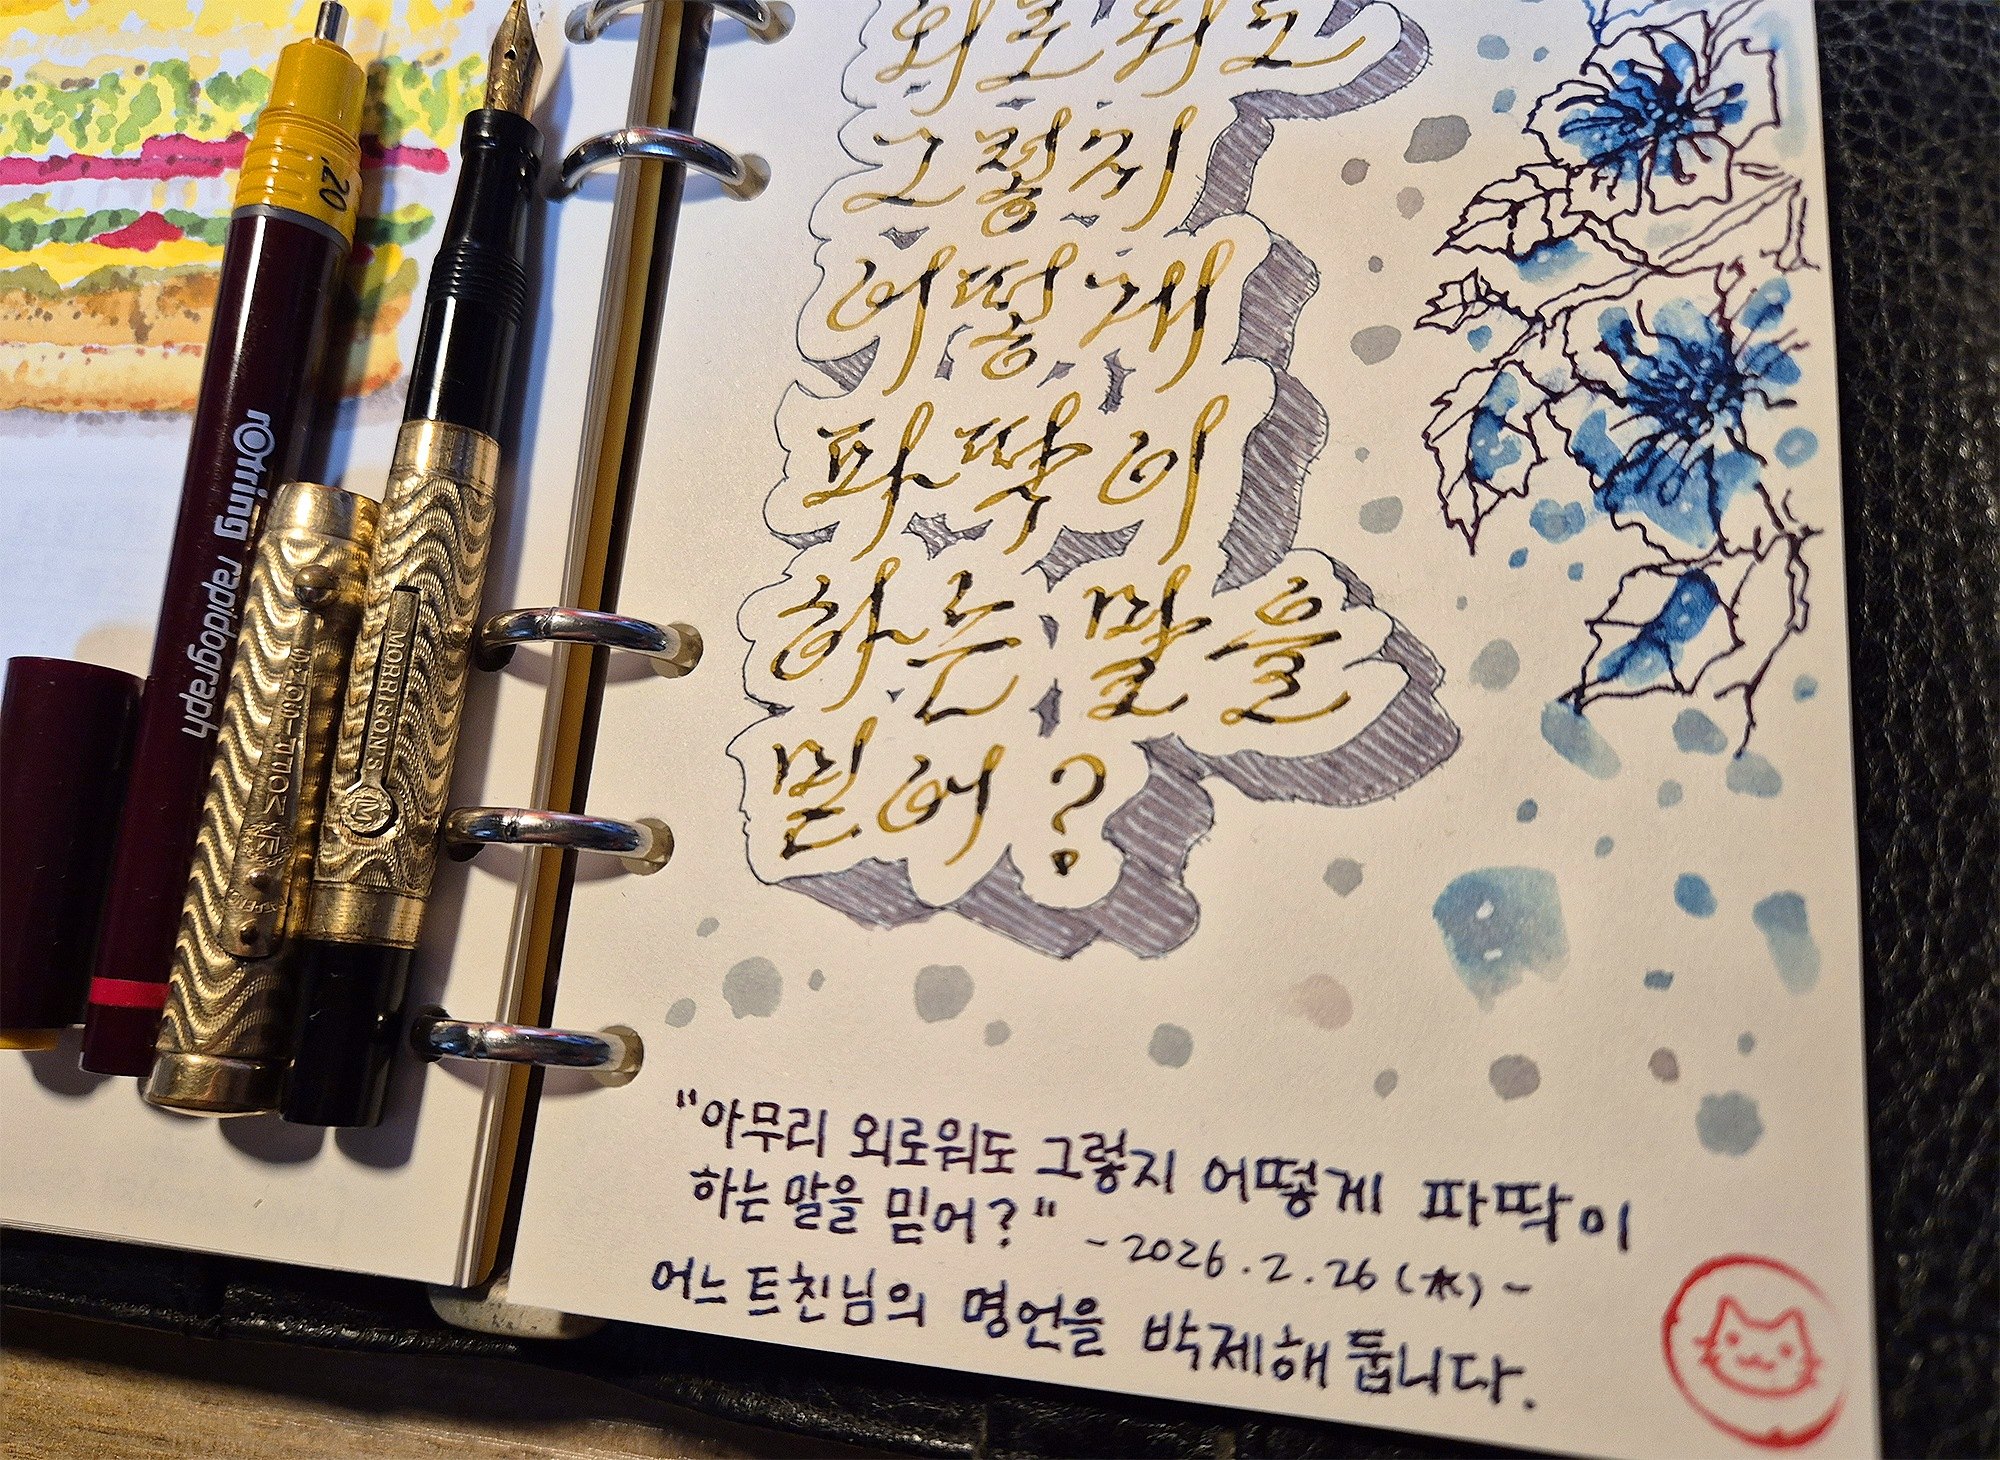 외로워도
그렇지
어떻게
파딱이
하는 말을
믿어?
"아무리 외로워도 그렇지 어떻게 파딱이
하는 말을 믿어?"
- 2026.2.26 (水) -
어느 트친님의 명언을 박제해 둡니다.
.20
rOtring rapidograph
MORRISON'S